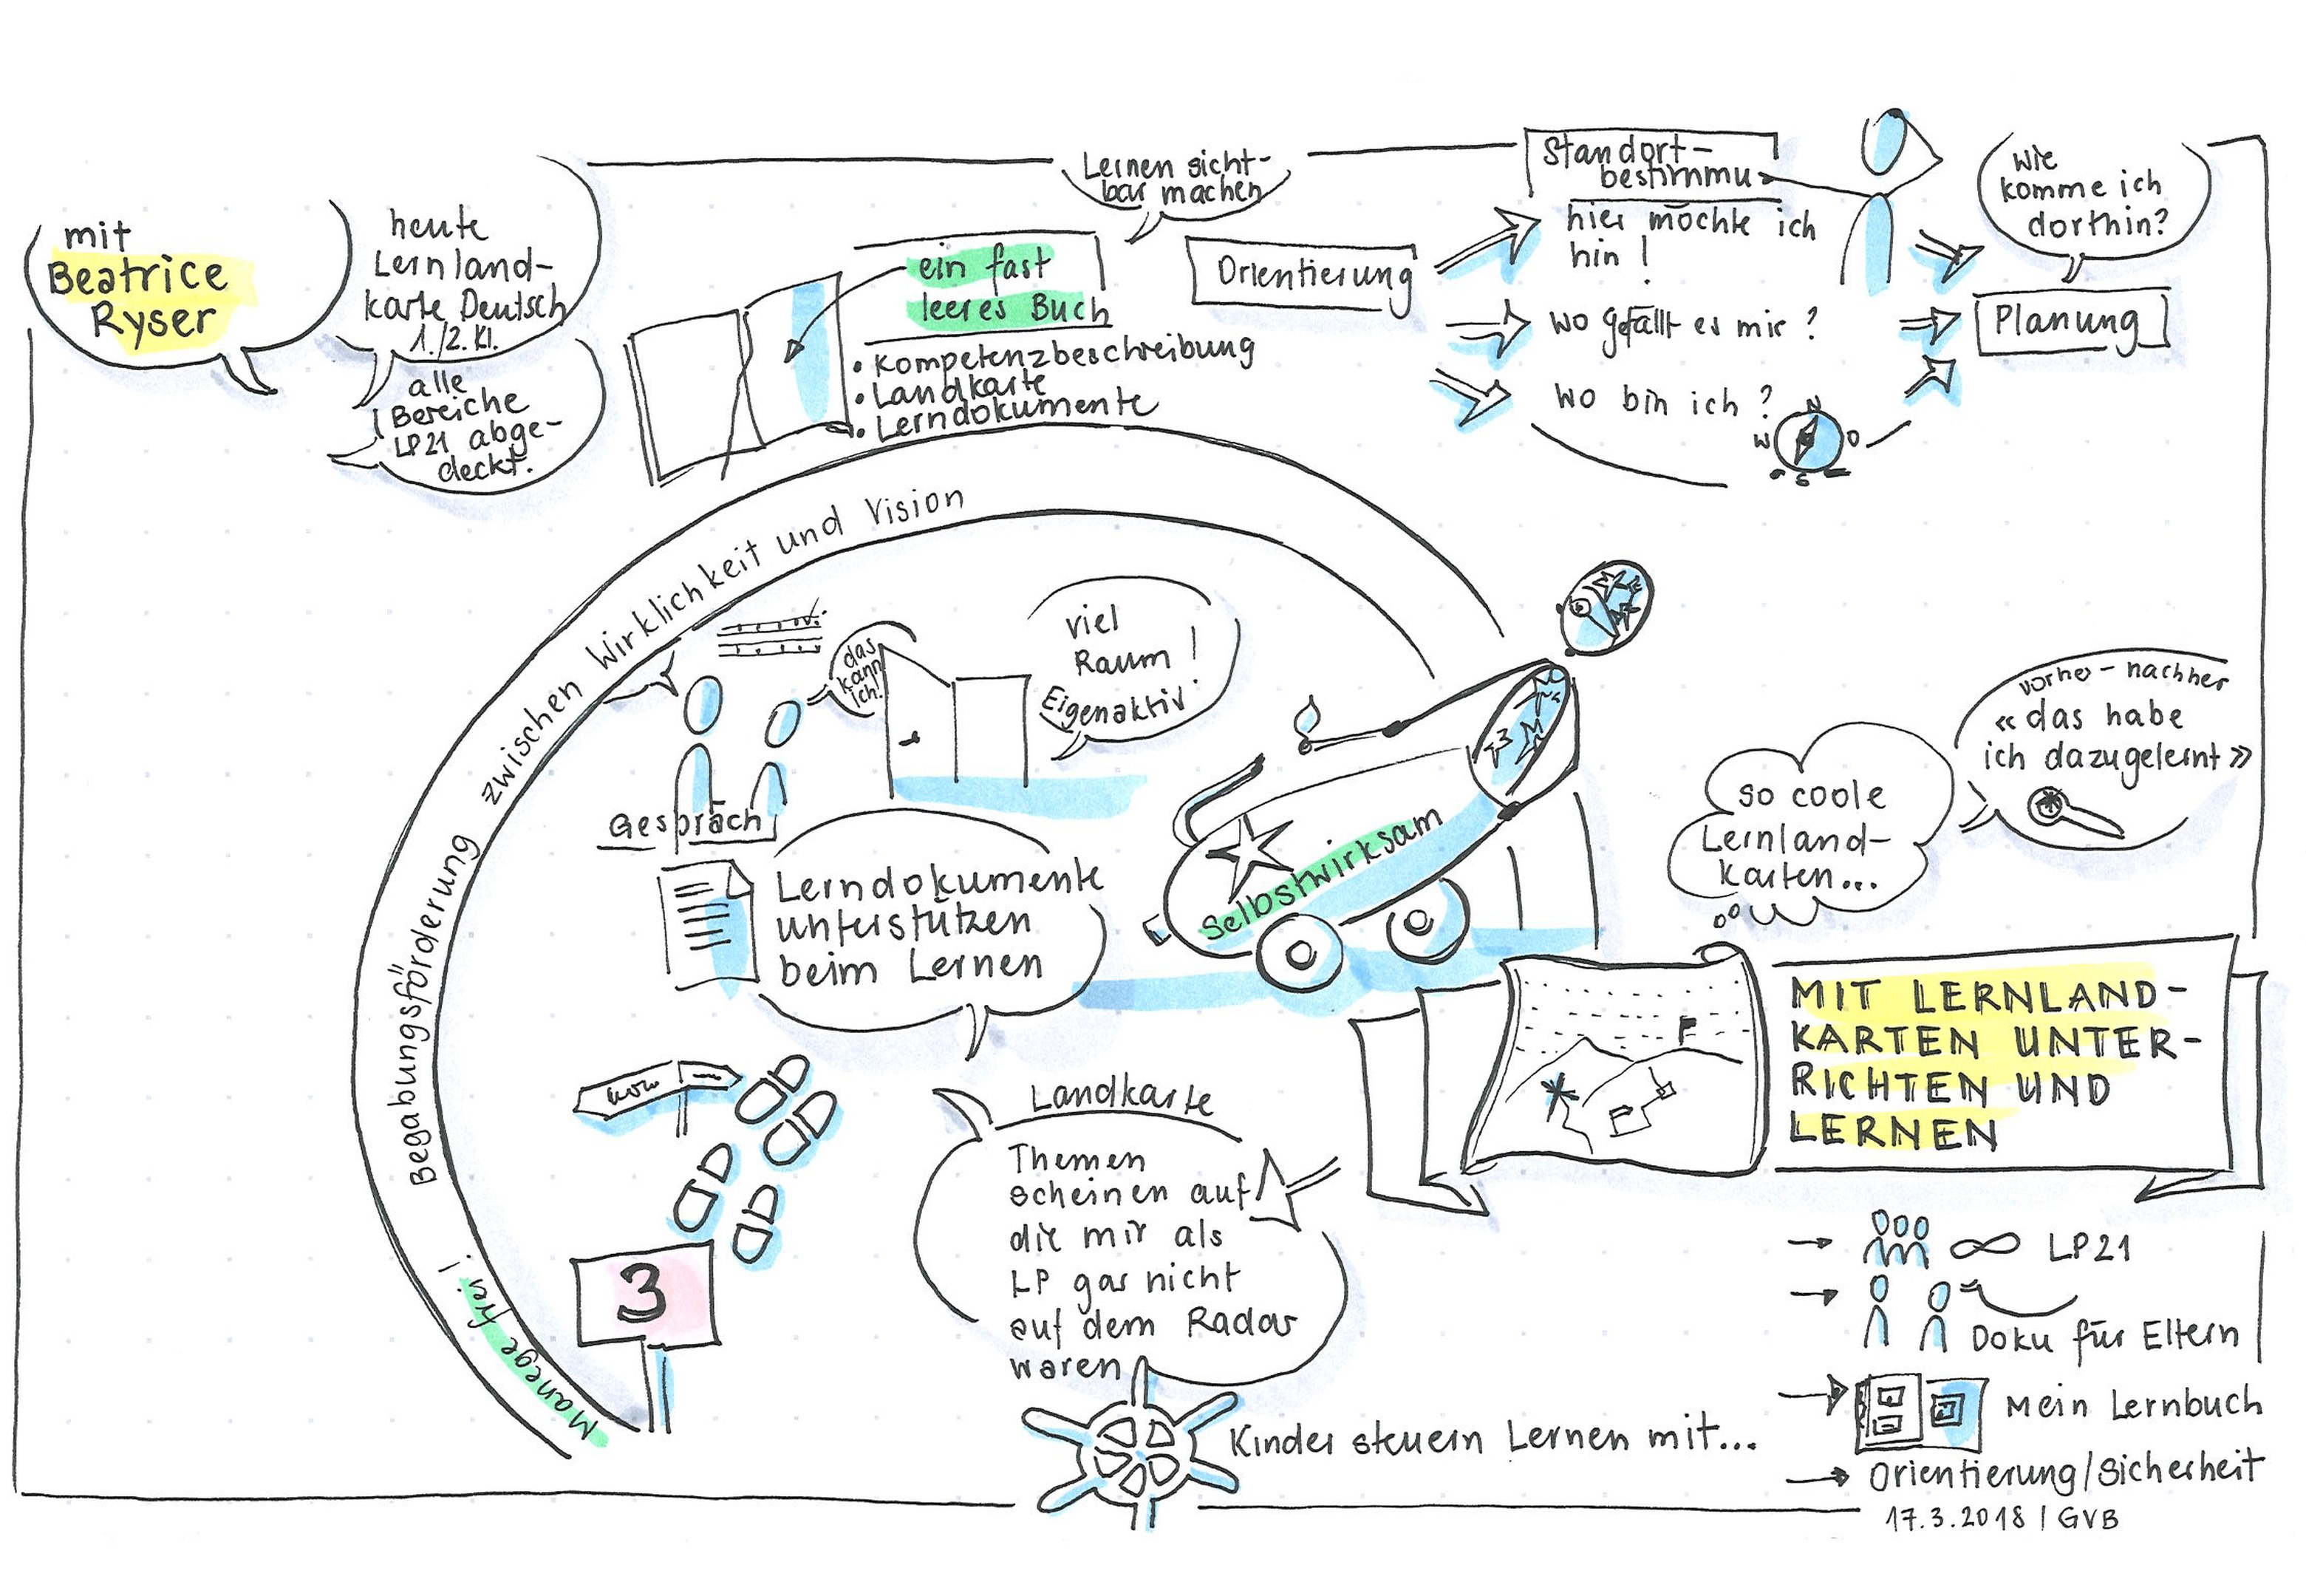 mit
Beatrice
Ryser
heute
Lernland-
karte Deutsch
1./2. Kl.
alle
Bereiche
LP21 abge-
deckt.
Lernen sicht-
bar machen
ein fast
leeres Buch
• Kompetenzbeschreibung
• Landkarte
• Lerndokumente
Orientierung
Standort-
bestimmu
hier möchte ich
hin!
wo gefällt es mir?
wo bin ich?
N
W
O
S
wie
komme ich
dorthin?
Planung
Manege frei!
Begabungsförderung zwischen Wirklichkeit und Vision
das
kann
ich!
viel
Raum!
Eigenaktiv!
Gespräch
Lerndokumente
unterstützen
beim Lernen
Selbstwirksam
vorher - nachher
«das habe
ich dazugelernt»
so coole
Lernland-
karten...
MIT LERNLAND-
KARTEN UNTER-
RICHTEN UND
LERNEN
3
Landkarte
Themen
scheinen auf
die mir als
LP gar nicht
auf dem Radar
waren
Kinder steuern Lernen mit...
LP21
Doku für Eltern
Mein Lernbuch
Orientierung/Sicherheit
17.3.2018 | GVB